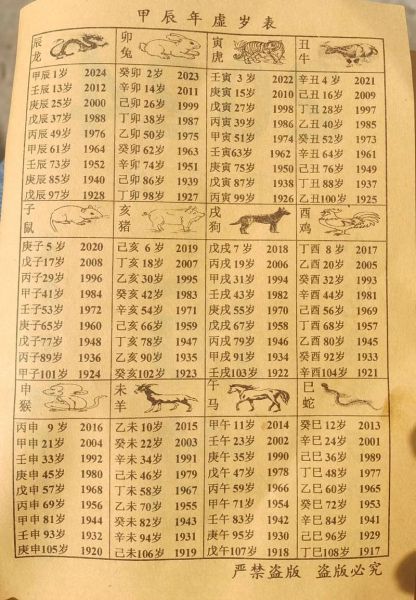 甲辰年虚岁表
辰 卯 寅 丑
龙 兔 虎 牛
甲辰1岁 2024 癸卯 2岁 2023 壬寅 3岁 2022 辛丑 4岁 2021
壬辰13岁 2012 辛卯14岁 2011 庚寅15岁 2010 己丑16岁 2009
庚辰25岁 2000 己卯26岁 1999 戊寅27岁 1998 丁丑28岁 1997
戊辰37岁 1988 丁卯38岁 1987 丙寅39岁 1986 乙丑40岁 1985
丙辰49岁 1976 乙卯50岁 1975 甲寅51岁 1974 癸丑52岁 1973
甲辰61岁 1964 癸卯62岁 1963 壬寅63岁 1962 辛丑64岁 1961
壬辰73岁 1952 辛卯74岁 1951 庚寅75岁 1950 己丑76岁 1949
庚辰85岁 1940 己卯86岁 1939 戊寅87岁 1938 丁丑88岁 1937
戊辰97岁 1928 丁卯98岁 1927 丙寅99岁 1926 乙丑100岁 1925
子 亥 戌 酉
鼠 猪 狗 鸡
庚子5岁 2020 己亥 6岁 2019 戊戌7岁 2018 丁酉 8岁 2017
戊子17岁 2008 丁亥18岁 2007 丙戌19岁 2006 乙酉20岁 2005
丙子29岁 1996 乙亥30岁 1995 甲戌31岁 1994 癸酉32岁 1993
甲子41岁 1984 癸亥42岁 1983 壬戌43岁 1982 辛酉44岁 1981
壬子53岁 1972 辛亥54岁 1971 庚戌55岁 1970 己酉56岁 1969
庚子65岁 1960 己亥66岁 1959 戊戌67岁 1958 丁酉68岁 1957
戊子77岁 1948 丁亥78岁 1947 丙戌79岁 1946 乙酉80岁 1945
丙子89岁 1936 乙亥90岁 1935 甲戌91岁 1934 癸酉92岁 1933
甲子101岁 1924 癸亥102岁 1923 壬戌103岁 1922 辛酉104岁 1921
申 未 午 巳
猴 羊 马 蛇
丙申 9岁 2016 乙未10岁 2015 甲午11岁 2014 癸巳12岁 2013
甲申21岁 2004 癸未22岁 2003 壬午23岁 2002 辛巳24岁 2001
壬申33岁 1992 辛未34岁 1991 庚午35岁 1990 己巳36岁 1989
庚申45岁 1980 己未46岁 1979 戊午47岁 1978 丁巳48岁 1977
戊申57岁 1968 丁未58岁 1967 丙午59岁 1966 乙巳60岁 1965
丙申69岁 1956 乙未70岁 1955 甲午71岁 1954 癸巳72岁 1953
甲申81岁 1944 癸未82岁 1943 壬午83岁 1942 辛巳84岁 1941
壬申93岁 1932 辛未94岁 1931 庚午95岁 1930 己巳96岁 1929
庚申105岁 1920 己未106岁 1919 戊午107岁 1918 丁巳108岁 1917
严禁盗版 盗版必究